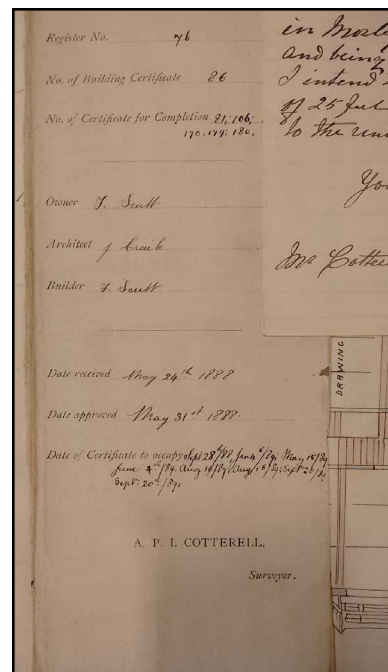 Register No. 76
No. of Building Certificate 86
No. of Certificate for Completion 81, 106,
170. 179. 180.
Owner F. Scutt
Architect J Craik
Builder F. Scutt
Date received May 24th 1888
Date approved May 31st 1888.
Date of Certificate to occupy Sept 28th/88, Jan 4th/89, May 15/89
June 4th/89. Aug 14/89, Aug 16/89, Sept 20/89
Sept. 20th/89.
A. P. I. COTTERELL,
Surveyor.
in
and being
I intend
of 25 feet
to the
You
Mr Cotte
DRAWING